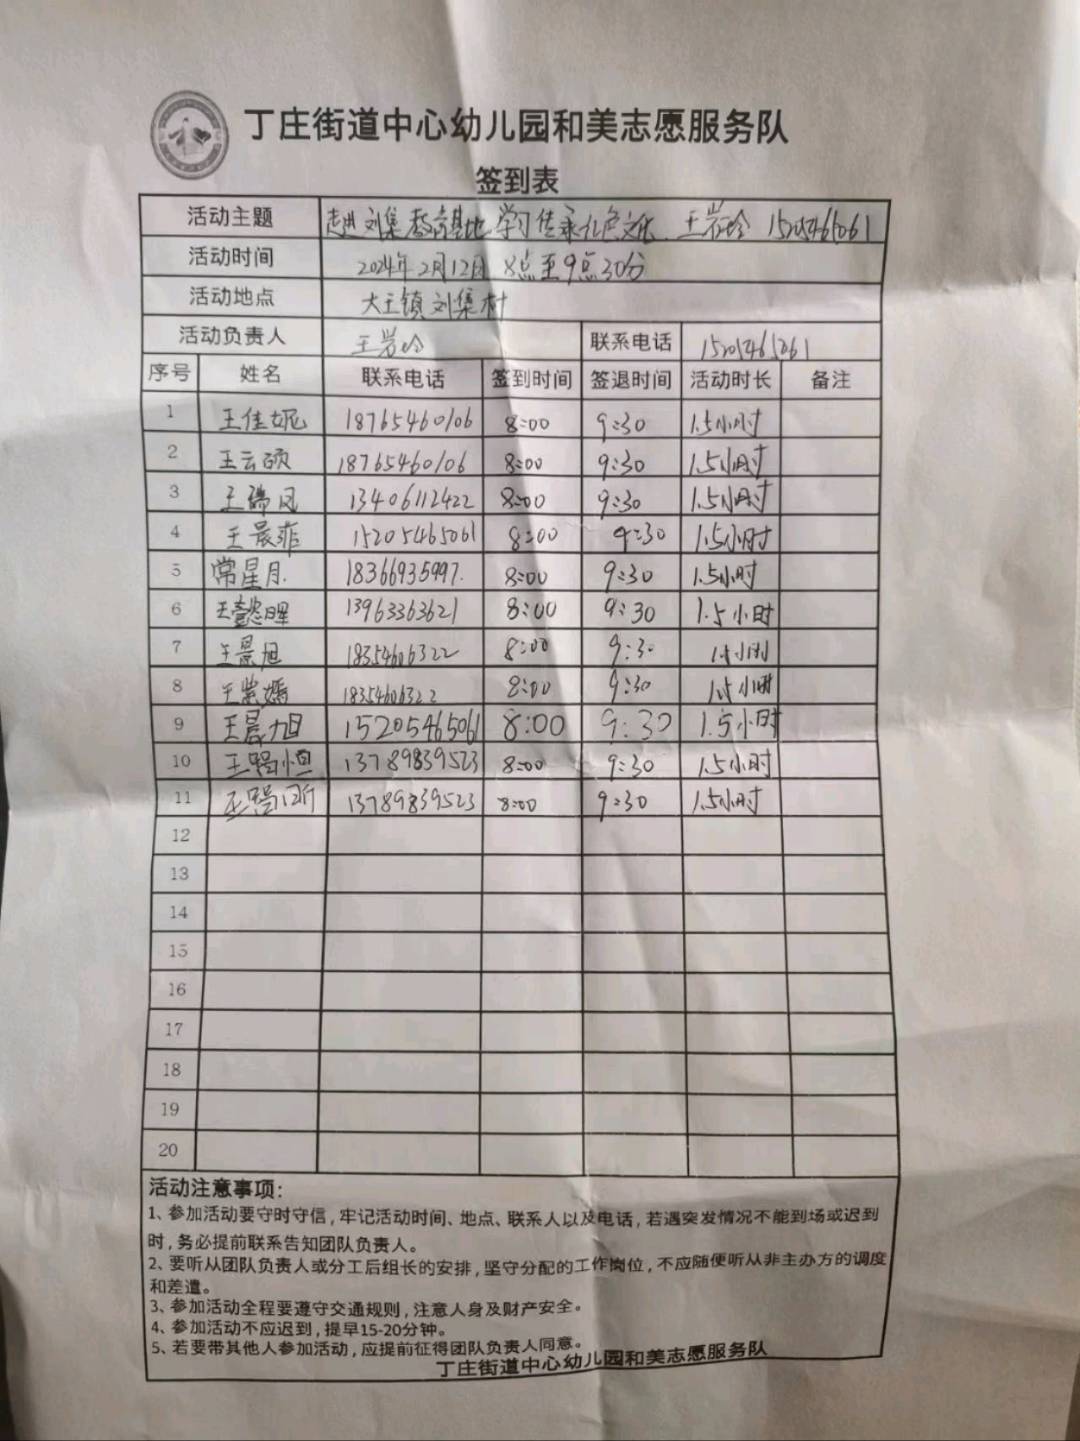 丁庄街道中心幼儿园和美志愿服务队
签到表
活动主题 走进刘集教育基地 学习传承红色文化. 王岩玲 15205465061
活动时间 2024年2月12日 8点至9点30分
活动地点 大王镇刘集村
活动负责人 王岩玲 联系电话 15205465061
序号 姓名 联系电话 签到时间 签退时间 活动时长 备注
1 王佳妮 18765460106 8:00 9:30 1.5小时
2 王云硕 18765460106 8:00 9:30 1.5小时
3 王瑞凤 13406112422 8:00 9:30 1.5小时
4 王晨菲 15205465061 8:00 9:30 1.5小时
5 常星月 18366935997. 8:00 9:30 1.5小时
6 王懿晖 13963363621 8:00 9:30 1.5小时
7 王景旭 18354606322 8:00 9:30 1.5小时
8 王紫嫣 18354606322 8:00 9:30 1.5小时
9 王晨旭 15205465061 8:00 9:30 1.5小时
10 13789839523 8:00 9:30 1.5小时
11 13789839523 8:00 9:30 1.5小时
12
13
14
15
16
17
18
19
20
活动注意事项：
1、参加活动要守时守信，牢记活动时间、地点、联系人以及电话，若遇突发情况不能到场或迟到
时，务必提前联系告知团队负责人。
2、要听从团队负责人或分工后组长的安排，坚守分配的工作岗位，不应随便听从非主办方的调度
和差遣。
3、参加活动全程要遵守交通规则，注意人身及财产安全。
4、参加活动不应迟到，提早15-20分钟。
5、若要带其他人参加活动，应提前征得团队负责人同意。
丁庄街道中心幼儿园和美志愿服务队